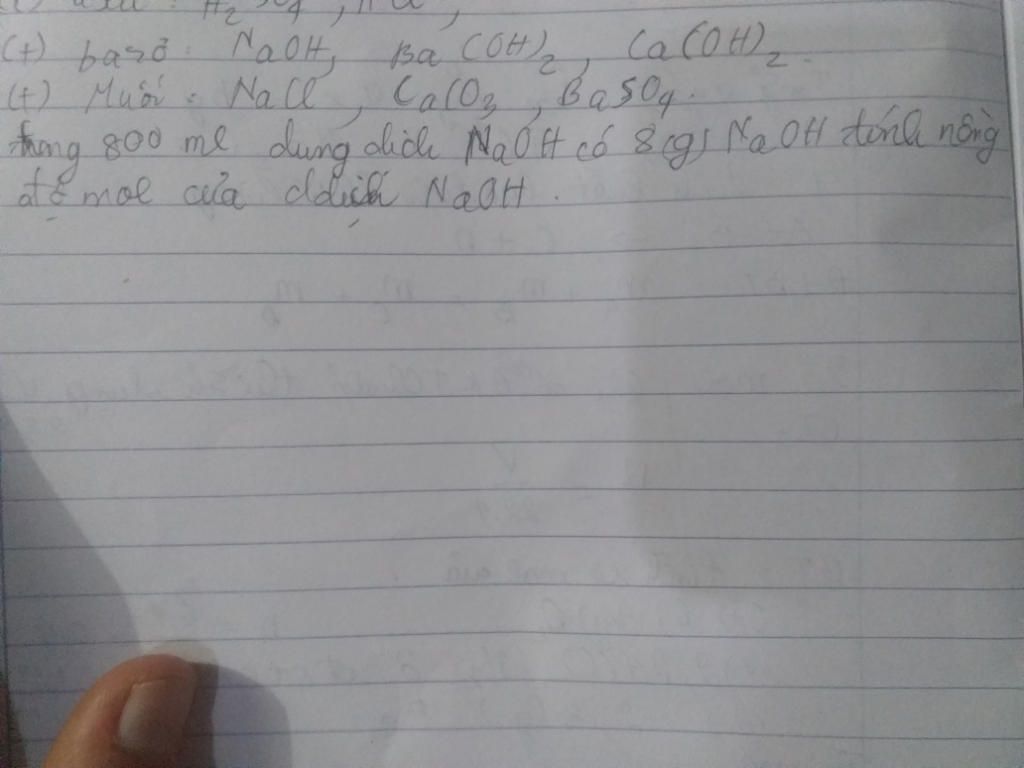 H2SO4, HCl,
(+) bazơ: NaOH, Ba(OH)2, Ca(OH)2.
(+) Muối: NaCl, CaCO3, BaSO4.
trong 800 ml dung dịch NaOH có 8(g) NaOH tính nồng
độ mol của ddịch NaOH.